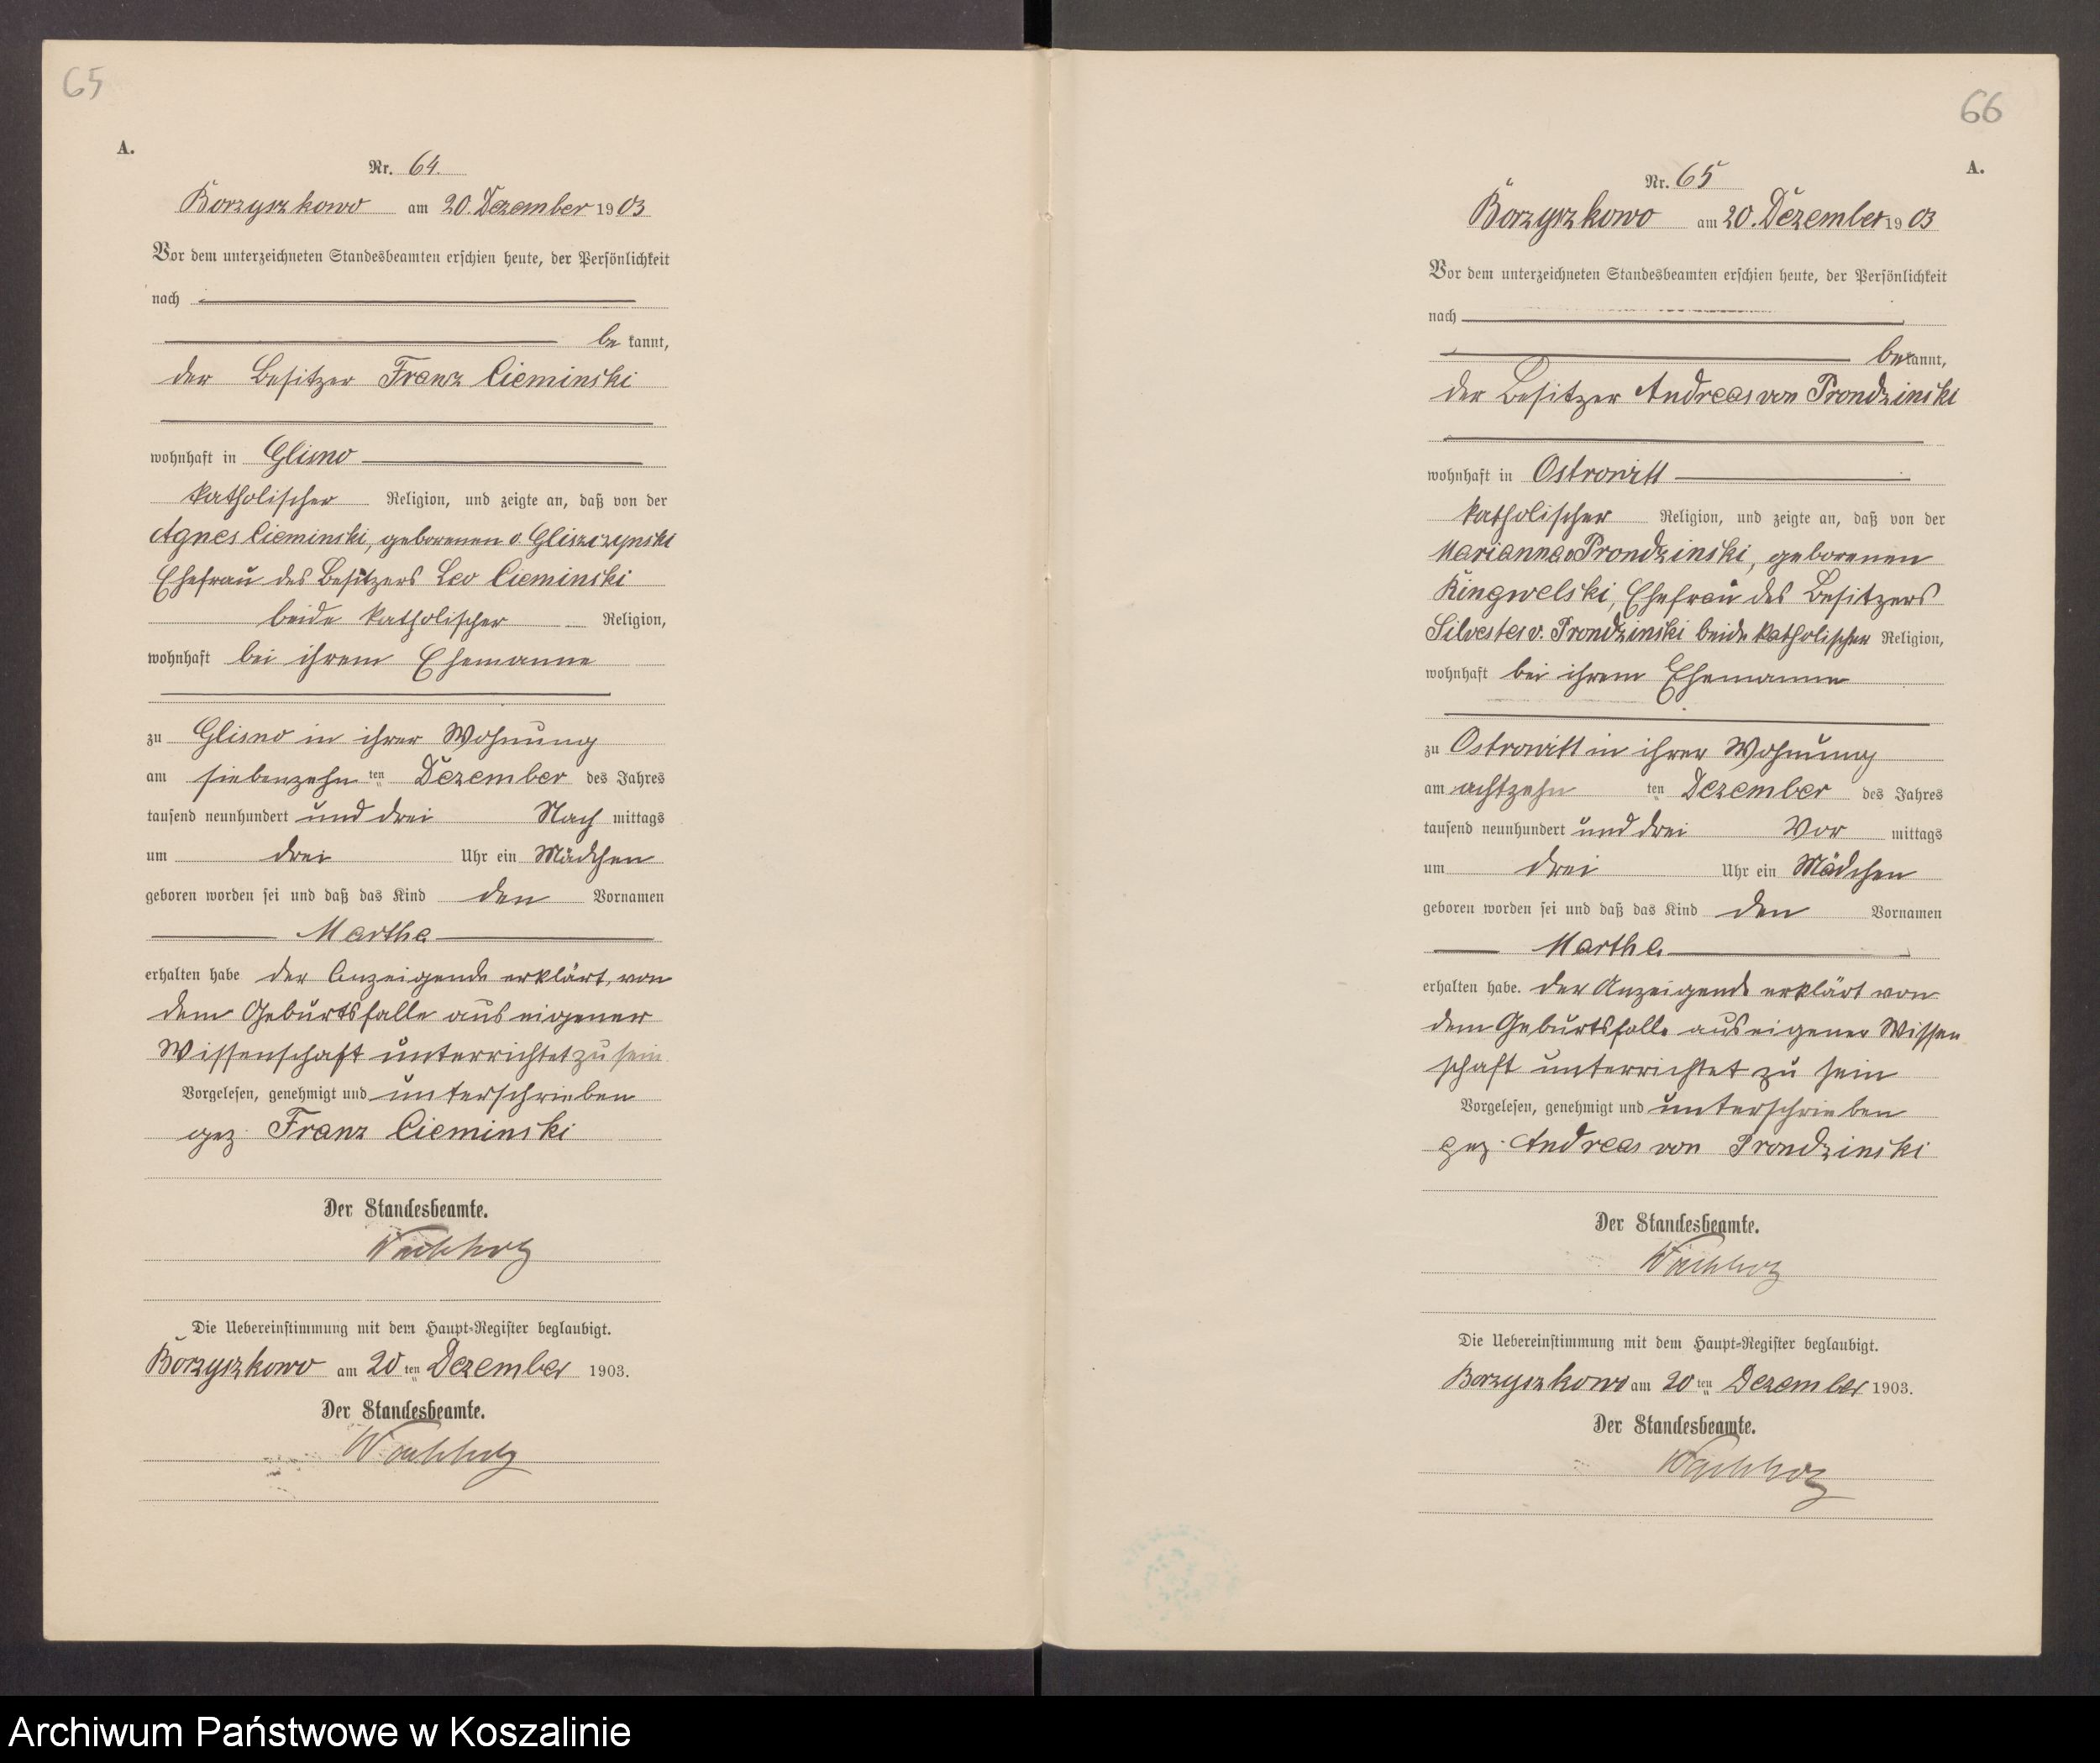 65
A.
Nr. 64.
Borzyszkowo am 20. Dezember 1903
Vor dem unterzeichneten Standesbeamten erschien heute, der Persönlichkeit
nach
be kannt,
der Besitzer Franz Cieminski
wohnhaft in Glisno
katholischer Religion, und zeigte an, daß von der
Agnes Cieminski, geborenen v. Gliszczynski
Ehefrau des Besitzers Leo Cieminski
beide katholischer Religion,
wohnhaft bei ihrem Ehemanne
zu Glisno in ihrer Wohnung
am siebenzehn ten Dezember des Jahres
tausend neunhundert und drei Nach mittags
um drei Uhr ein Mädchen
geboren worden sei und daß das Kind den Vornamen
Martha
erhalten habe der Anzeigende erklärt, von
dem Geburtsfalle aus eigener
Wissenschaft unterrichtet zu sein.
Vorgelesen, genehmigt und unterschrieben
gez. Franz Cieminski
Der Standesbeamte.
Wachholz
Die Uebereinstimmung mit dem Haupt-Register beglaubigt.
Borzyszkowo am 20 ten Dezember 1903.
Der Standesbeamte.
Wachholz
66
A.
Nr. 65
Borzyszkowo am 20. Dezember 1903
Vor dem unterzeichneten Standesbeamten erschien heute, der Persönlichkeit
nach
be kannt,
der Besitzer Andreas von Prondzinski
wohnhaft in Ostrowitt
katholischer Religion, und zeigte an, daß von der
Marianna v Prondzinski, geborenen
Kingwelski, Ehefrau des Besitzers
Silvester v. Prondzinski beide katholischer Religion,
wohnhaft bei ihrem Ehemanne
zu Ostrowitt in ihrer Wohnung
am achtzehn ten Dezember des Jahres
tausend neunhundert und drei Vor mittags
um drei Uhr ein Mädchen
geboren worden sei und daß das Kind den Vornamen
Martha
erhalten habe. der Anzeigende erklärt von
dem Geburtsfalle aus eigener Wissen
schaft unterrichtet zu sein
Vorgelesen, genehmigt und unterschrieben
gez. Andreas von Prondzinski
Der Standesbeamte.
Wachholz
Die Uebereinstimmung mit dem Haupt-Register beglaubigt.
Borzyszkowo am 20 ten Dezember 1903.
Der Standesbeamte.
Wachholz
Archiwum Państwowe w Koszalinie